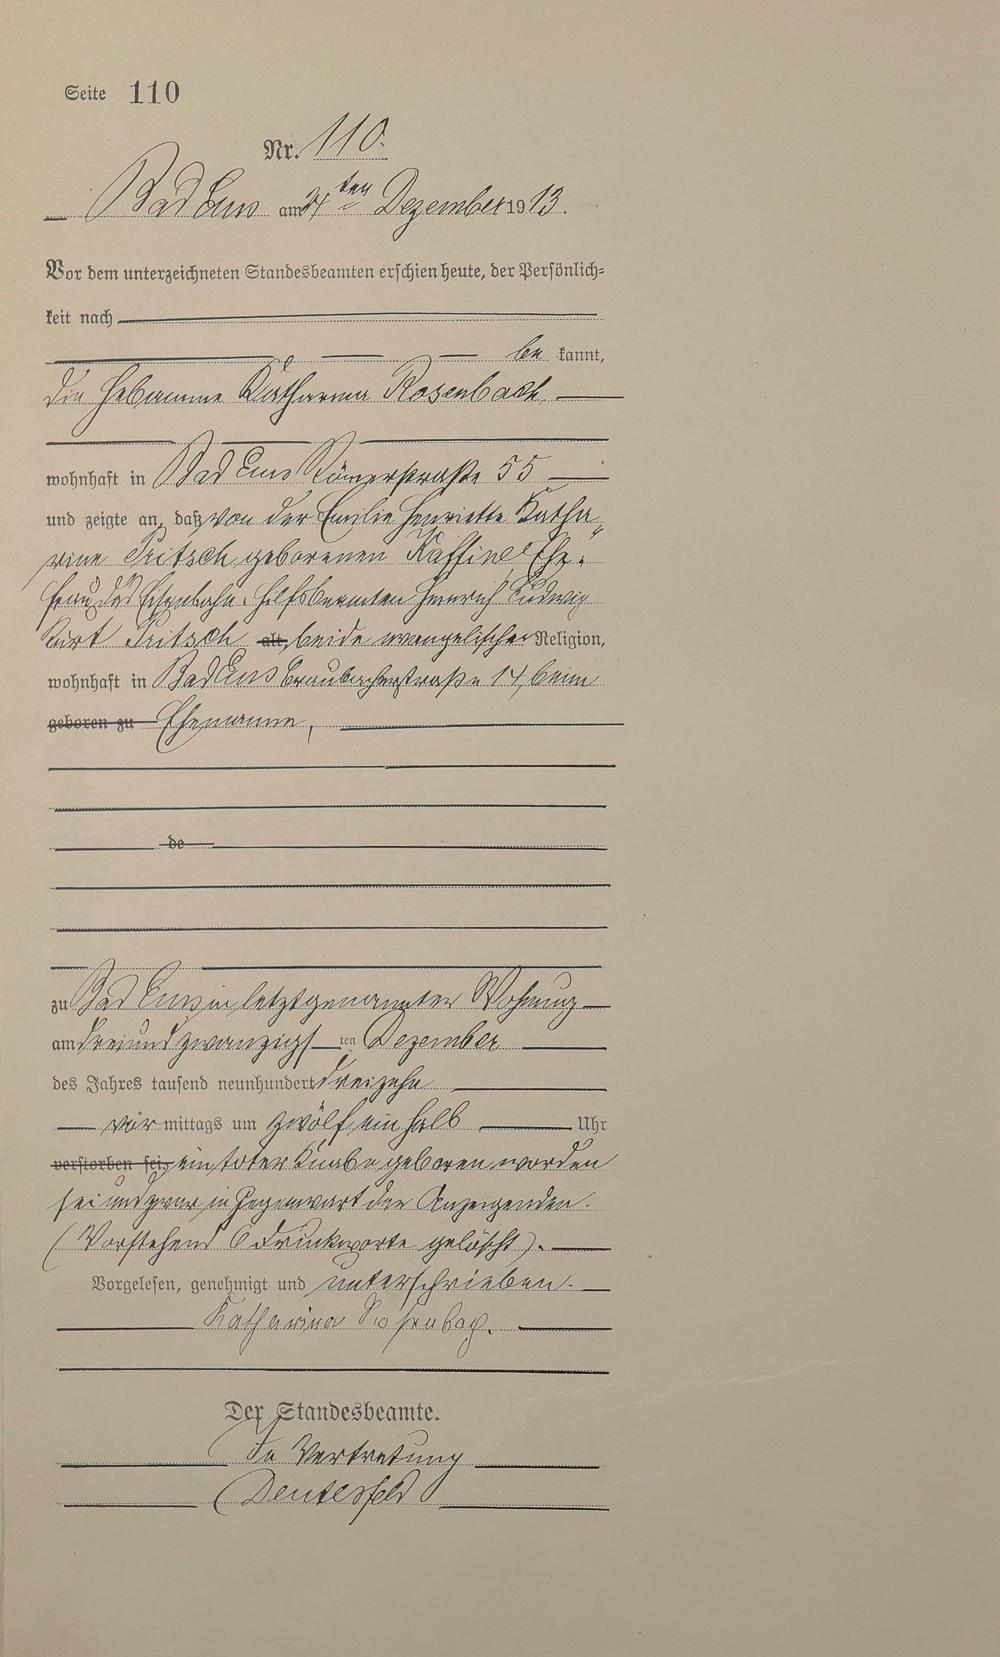 Seite 110
Nr. 110.
Bad Ems am 24ten Dezember 1913.
Vor dem unterzeichneten Standesbeamten erschien heute, der Persönlich-
keit nach
be kannt,
die Hebamme Katharina Rosenbach
wohnhaft in Bad Ems Römerstraße 55
und zeigte an, daß von der Emilie Henriette Katha-
rine Pritsch geborenen Kaffine, Ehe-
frau des Eisenbahn-Hilfsbeamten Heinrich Ludwig
Kurt Pritsch alt, beide evangelischer Religion,
wohnhaft in Bad Ems Braubacherstraße 14, beim
geboren zu Ehemanne,
de
zu Bad Ems in letztgenannter Wohnung
am dreiundzwanzigsten Dezember
des Jahres tausend neunhundert dreizehn
vor mittags um zwölf ein halb Uhr
verstorben sei, ein toter Knabe geboren worden
sei und zwar in Gegenwart der Anzeigenden.
(Vorstehend 6 Druckworte gelöscht).
Vorgelesen, genehmigt und unterschrieben.
Katharina Rosenbach.
Der Standesbeamte.
In Vertretung
Deutesfeld